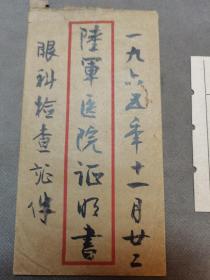 一九六五年十一月廿二
陸軍医院证明書
眼科检查証件